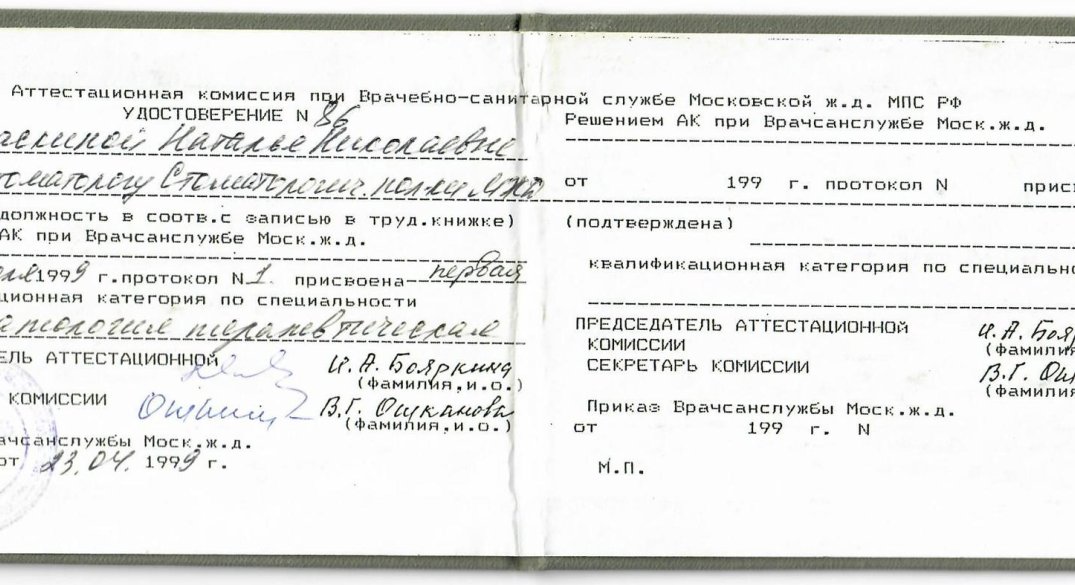 Аттестационная комиссия при Врачебно-санитарной службе Московской ж.д. МПС РФ
УДОСТОВЕРЕНИЕ N 86
аскиной Наталье Николаевне
томатологу Стоматологич. пол-ки МЖД
должность в соотв.с записью в труд.книжке)
АК при Врачсанслужбе Моск.ж.д.
1999 г.протокол N 1. присвоена первая
ционная категория по специальности
атология терапевтическая
ЕЛЬ АТТЕСТАЦИОННОЙ И.А. Бояркина
(фамилия,и.о.)
КОМИССИИ В.Г. Ошканова
(фамилия,и.о.)
ачсанслужбы Моск.ж.д.
от 23.04. 1999 г.
Решением АК при Врачсанслужбе Моск.ж.д.
от 199 г. протокол N присв
(подтверждена)
квалификационная категория по специально
ПРЕДСЕДАТЕЛЬ АТТЕСТАЦИОННОЙ И.А. Бояр
КОМИССИИ (фамилия
СЕКРЕТАРЬ КОМИССИИ В.Г. Ош
(фамилия
Приказ Врачсанслужбы Моск.ж.д.
от 199 г. N
М.П.